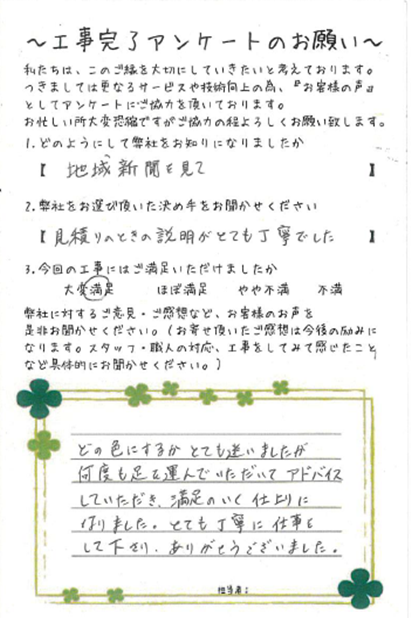 ～工事完了アンケートのお願い～
私たちは、このご縁を大切にしていきたいと考えております。
つきましては更なるサービスや技術向上の為、『お客様の声』
としてアンケートにご協力を頂いております。
お忙しい所大変恐縮ですがご協力の程よろしくお願い致します。
1.どのようにして弊社をお知りになりましたか
【 地域新聞を見て 】
2.弊社をお選び頂いた決め手をお聞かせください
【 見積りのときの説明がとても丁寧でした 】
3.今回の工事にはご満足いただけましたか
大変満足 ほぼ満足 やや不満 不満
弊社に対するご意見・ご感想など、お客様のお声を
是非お聞かせください。(お寄せ頂いたご感想は今後の励みに
なります。スタッフ・職人の対応、工事をしてみて感じたこと
など具体的にお聞かせください。)
どの色にするかとても迷いましたが
何度も足を運んでいただいてアドバイス
していただき、満足のいく仕上りに
なりました。とても丁寧に仕事を
して下さり、ありがとうございました。
担当者: